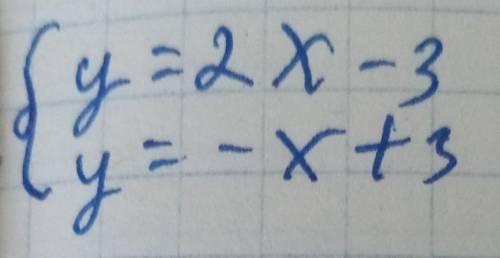 { y = 2x - 3
y = -x + 3